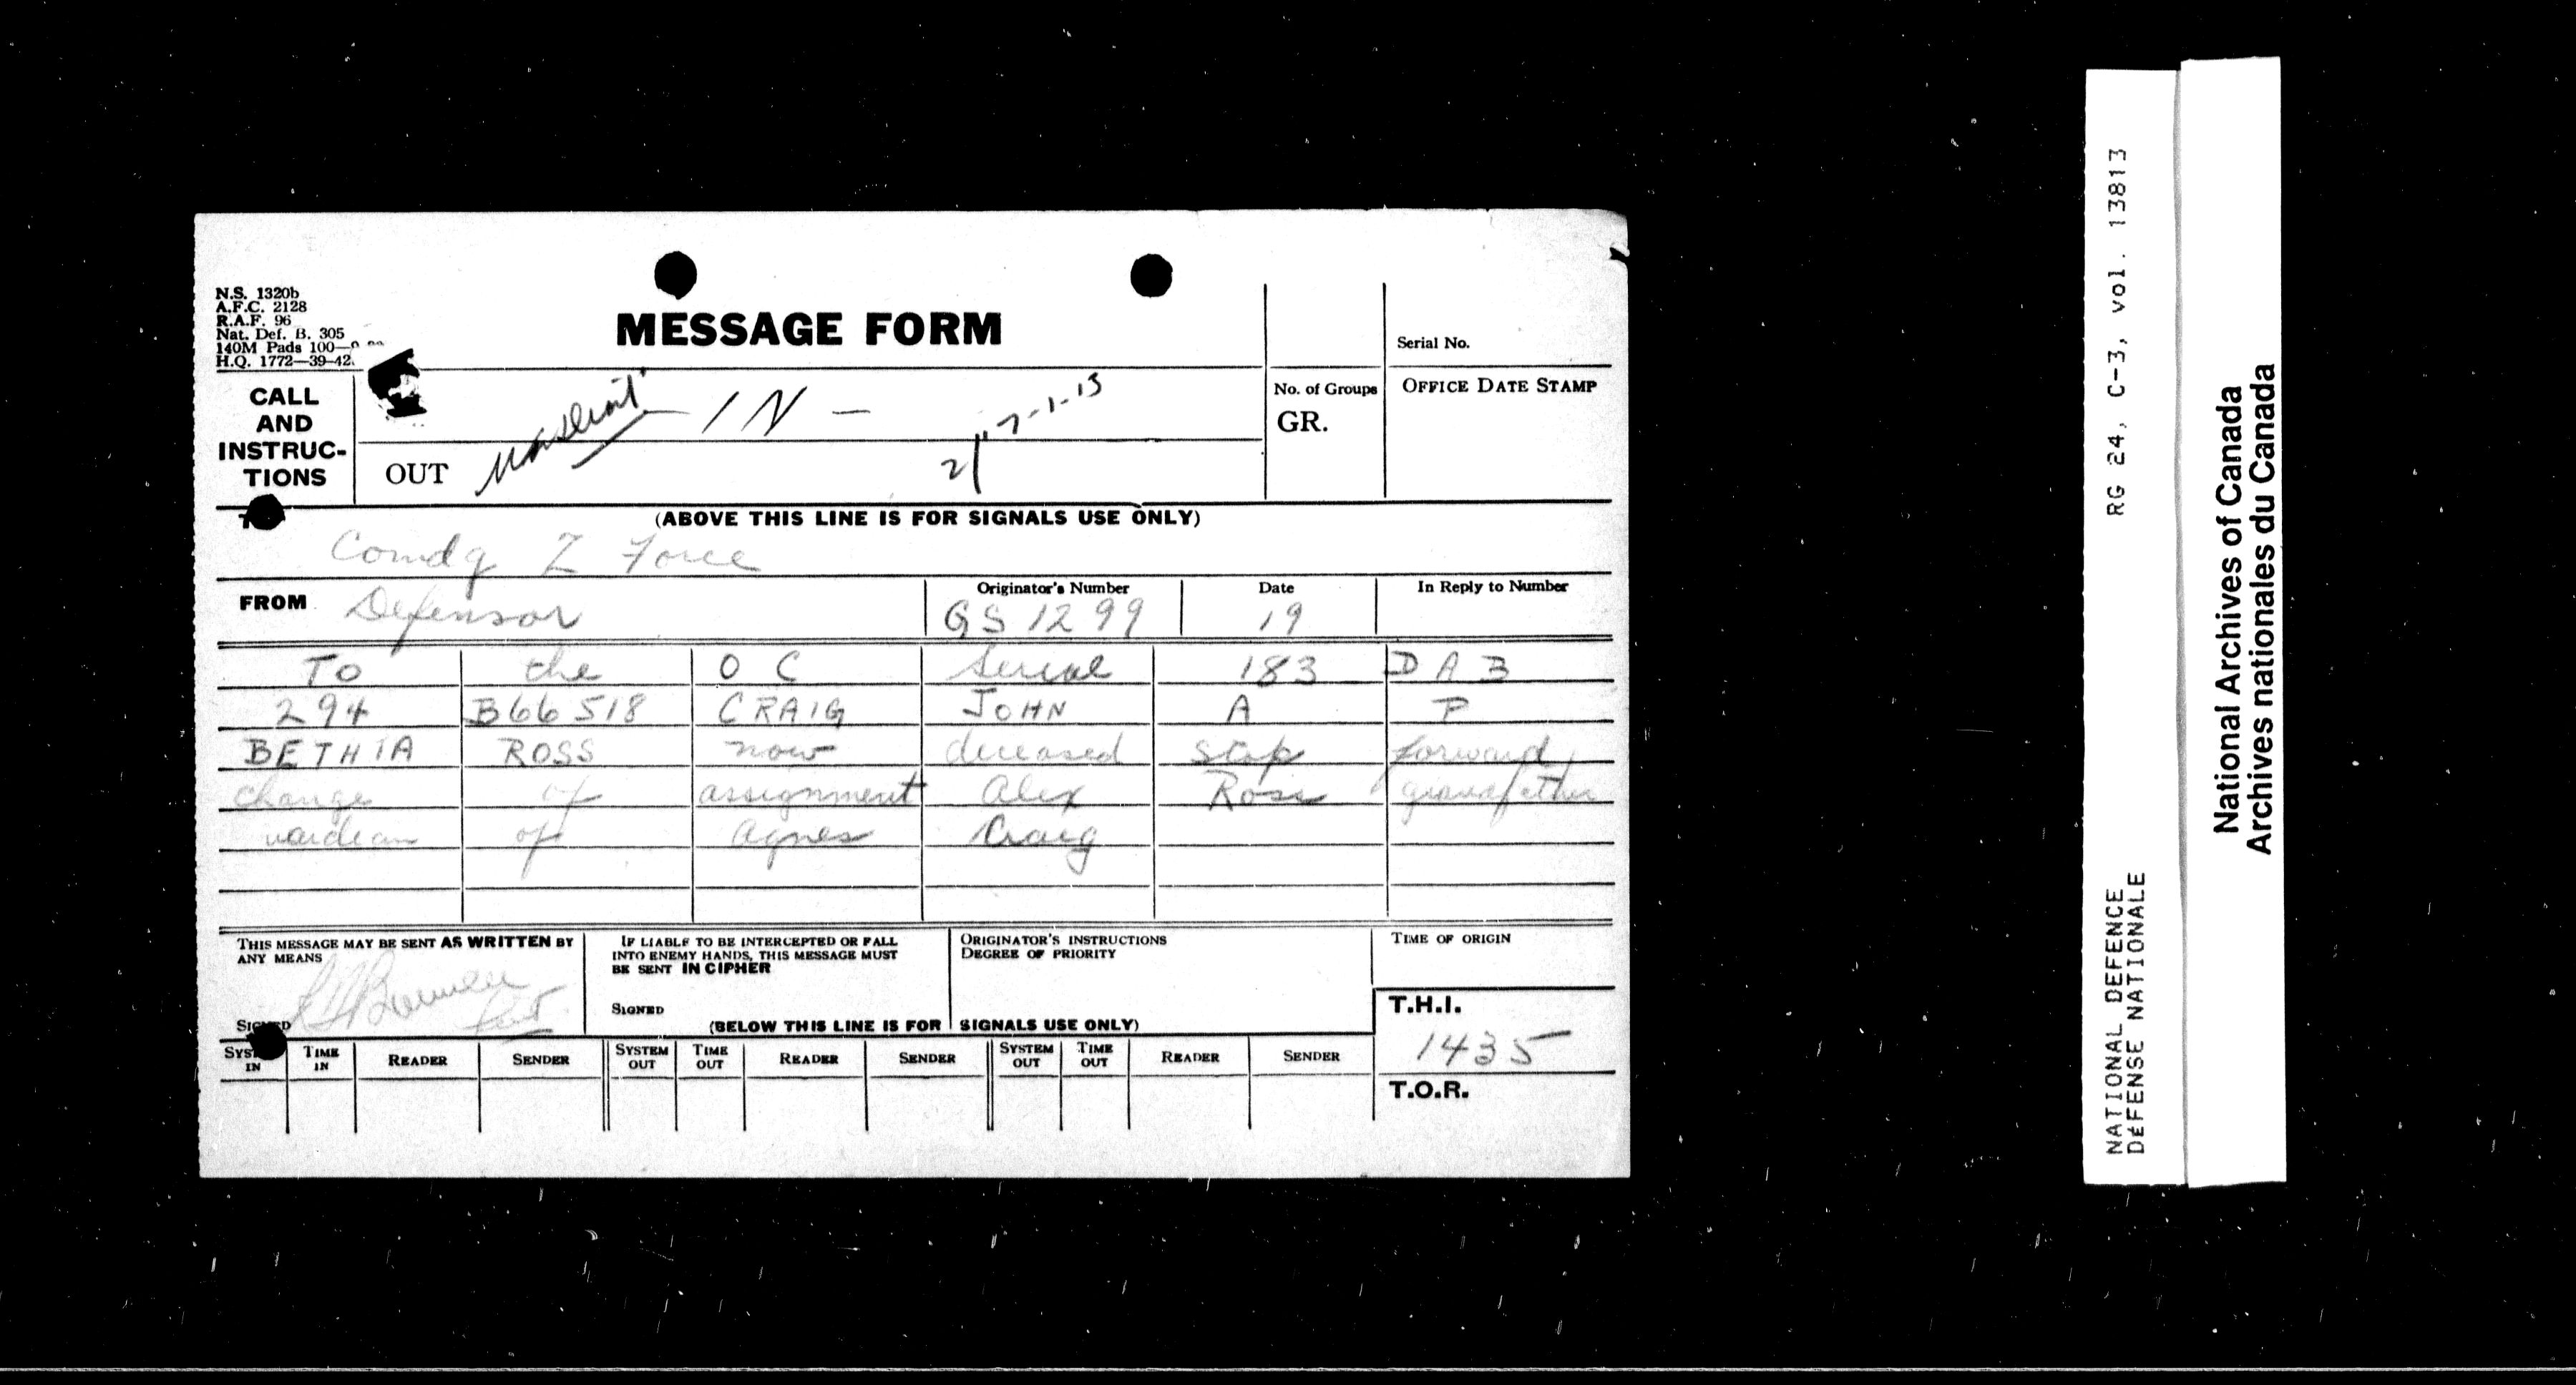 N.S. 1320b
A.F.C. 2128
R.A.F. 96
Nat. Def. B. 305
140M Pads 100—
H.Q. 1772—39-42
MESSAGE FORM
Serial No.
CALL AND INSTRUC-TIONS
IN —
7-1-13
OUT
No. of Groups
GR.
OFFICE DATE STAMP
(ABOVE THIS LINE IS FOR SIGNALS USE ONLY)
Comdg Z Force
FROM Defensor
Originator's Number GS 1299
Date 19
In Reply to Number
To the OC Serial 183 DAB
294 B66518 CRAIG JOHN A P
BETHIA ROSS now deceased stop forward
change of assignment Alex Ross grandfather
of Agnes Craig
THIS MESSAGE MAY BE SENT AS WRITTEN BY ANY MEANS
SIGNED
IF LIABLE TO BE INTERCEPTED OR FALL INTO ENEMY HANDS, THIS MESSAGE MUST BE SENT IN CIPHER
SIGNED
ORIGINATOR'S INSTRUCTIONS
DEGREE OF PRIORITY
TIME OF ORIGIN
(BELOW THIS LINE IS FOR SIGNALS USE ONLY)
T.H.I.
1435
T.O.R.
SYSTEM IN TIME IN READER SENDER SYSTEM OUT TIME OUT READER SENDER SYSTEM OUT TIME OUT READER SENDER
RG 24, C-3, vol. 13813
NATIONAL DEFENCE
DÉFENSE NATIONALE
National Archives of Canada
Archives nationales du Canada